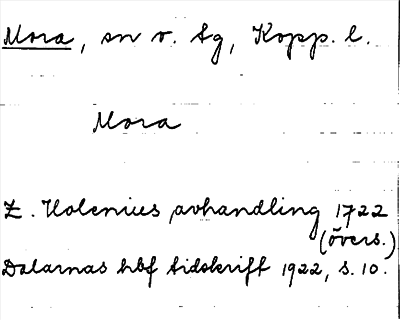 Mora, sn o. tg, Kopp. l.
Mora
E. Holenius avhandling 1722
(övers.)
Dalarnas hbf tidskrift 1922, s. 10.